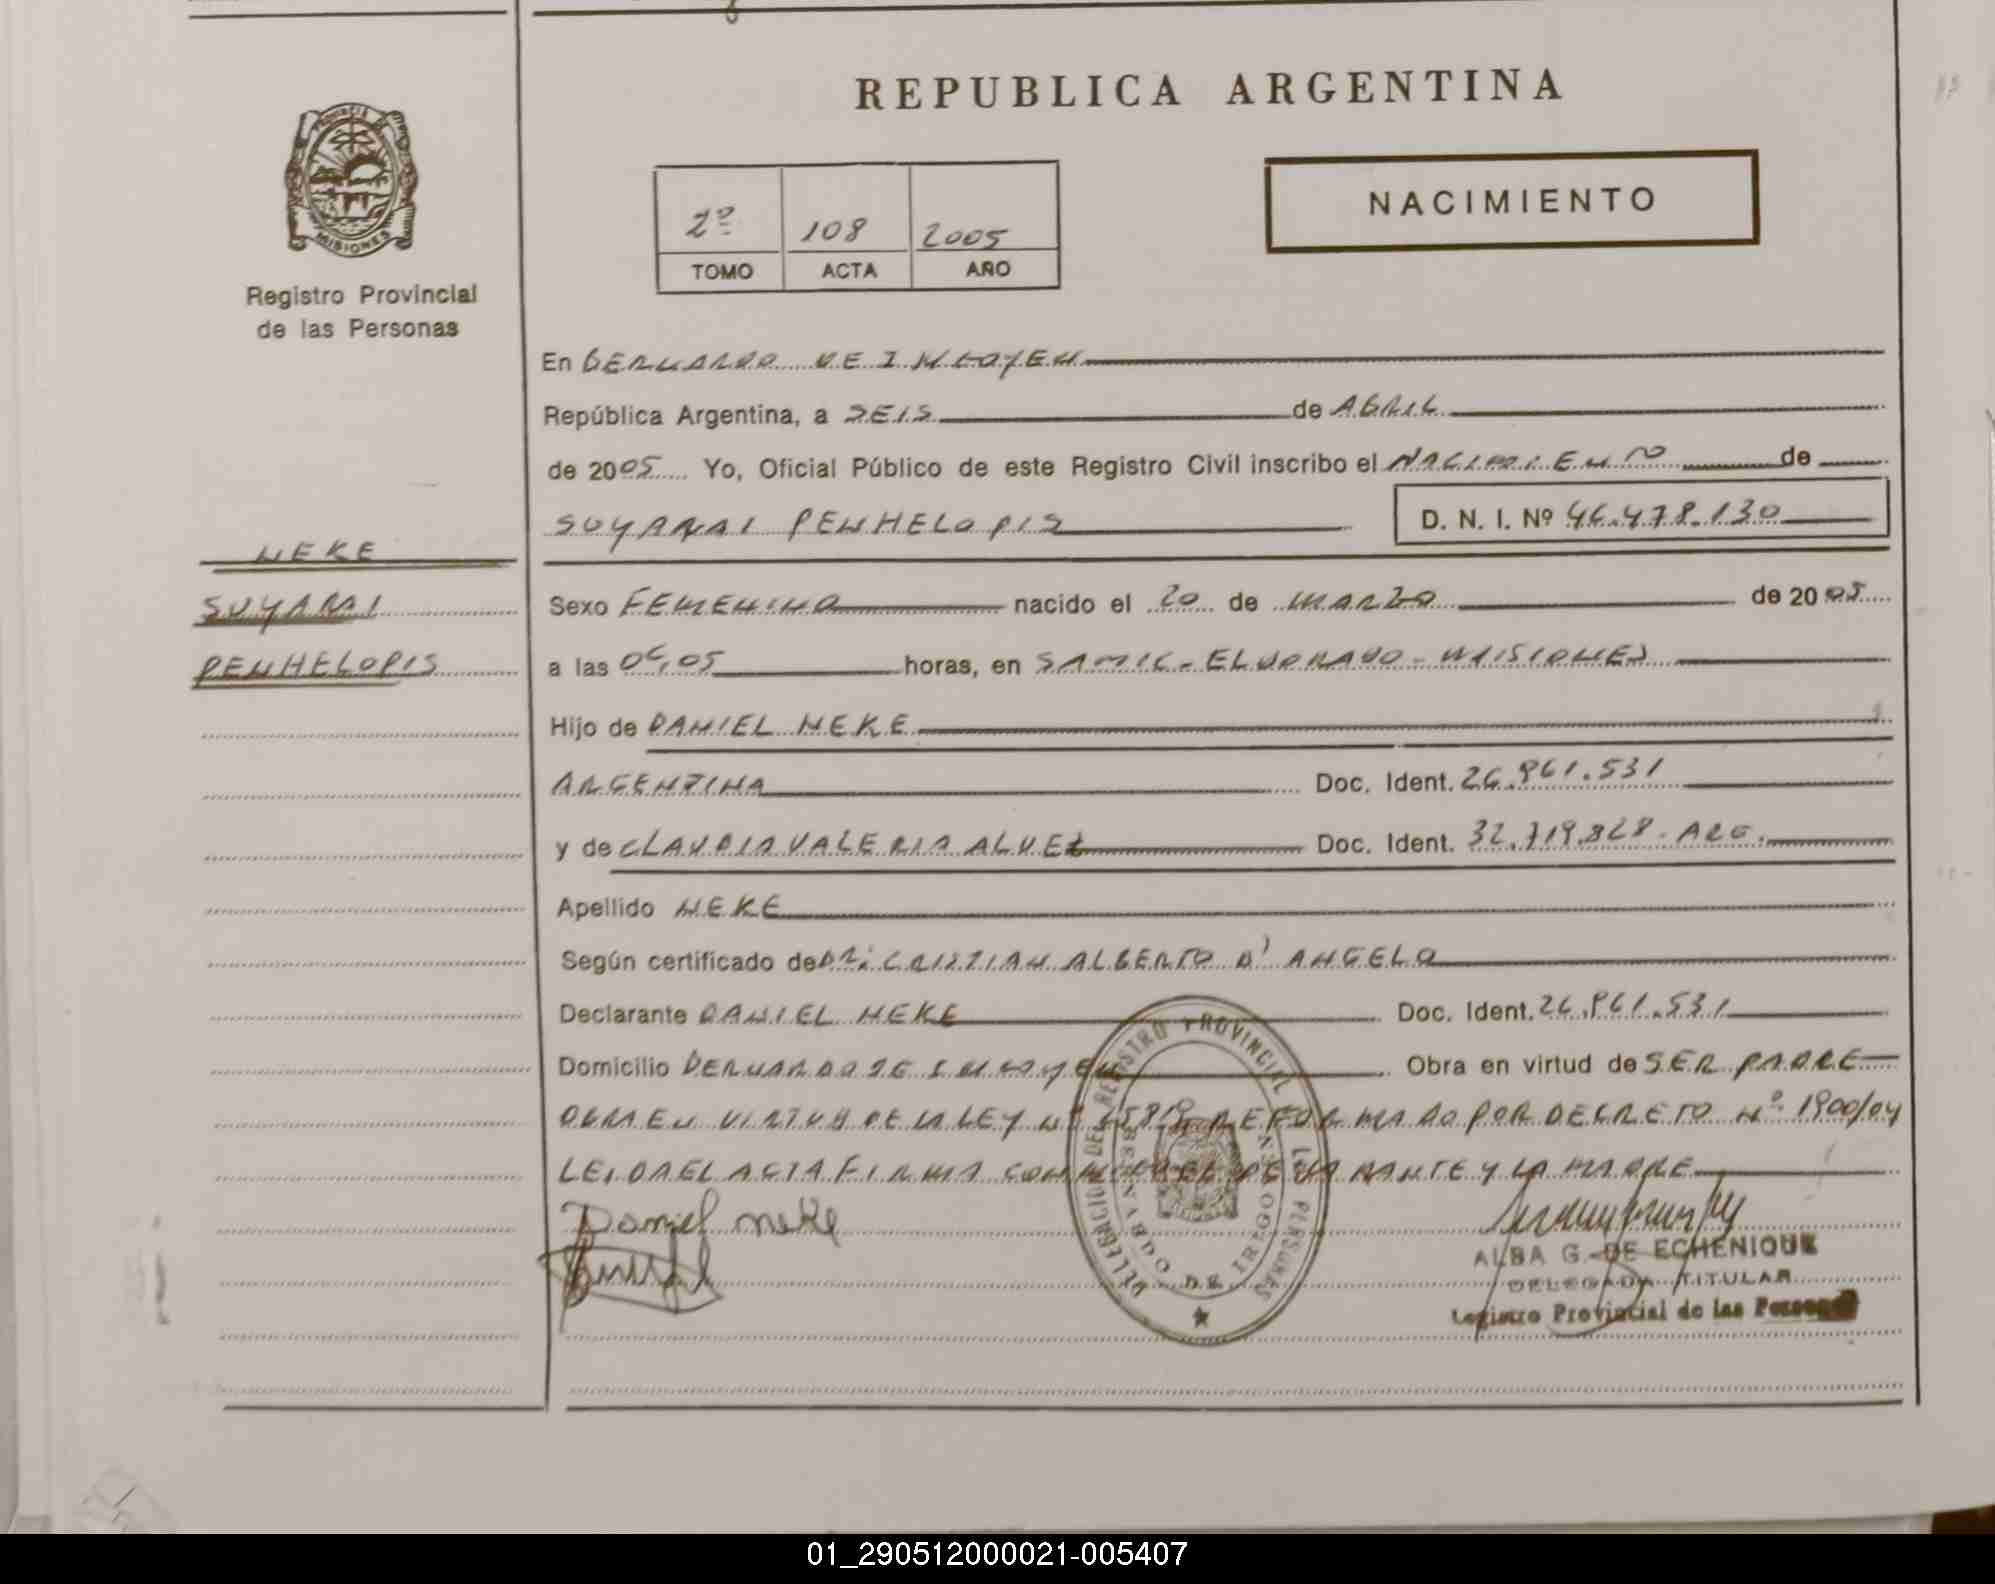 REPUBLICA ARGENTINA
PROVINCIA DE MISIONES
Registro Provincial
de las Personas
2º 108 2005
TOMO ACTA AÑO
NACIMIENTO
En BERNARDO DE IRIGOYEN
República Argentina, a SEIS de ABRIL
de 2005 Yo, Oficial Público de este Registro Civil inscribo el NACIMIENTO de
SUYANAI PENHELOPIS D. N. I. Nº 46.478.130
NEKE
SUYANAI
PENHELOPIS
Sexo FEMENINO nacido el 20 de MARZO de 2005
a las 06,05 horas, en SAMIC - ELDORADO - MISIONES
Hijo de DANIEL NEKE
ARGENTINA Doc. Ident. 26.961.531
y de CLAUDIA VALERIA ALVEZ Doc. Ident. 32.719.828. ARG.
Apellido NEKE
Según certificado de DR: CRISTIAN ALBERTO D' ANGELO
Declarante DANIEL NEKE Doc. Ident. 26.961.531
Domicilio BERNARDO DE IRIGOYEN Obra en virtud de SER PADRE
OBRA EN VIRTUD DE LA LEY Nº 25819 REFORMADO POR DECRETO Nº 1900/04
LEIDA EL ACTA FIRMA CONMIGO EL DECLARANTE Y LA MADRE
Daniel neke
DELEGACION DEL REGISTRO PROVINCIAL DE LAS PERSONAS
BERNARDO DE IRIGOYEN
ALBA G. DE ECHENIQUE
DELEGADA TITULAR
Registro Provincial de las Personas
01_290512000021-005407